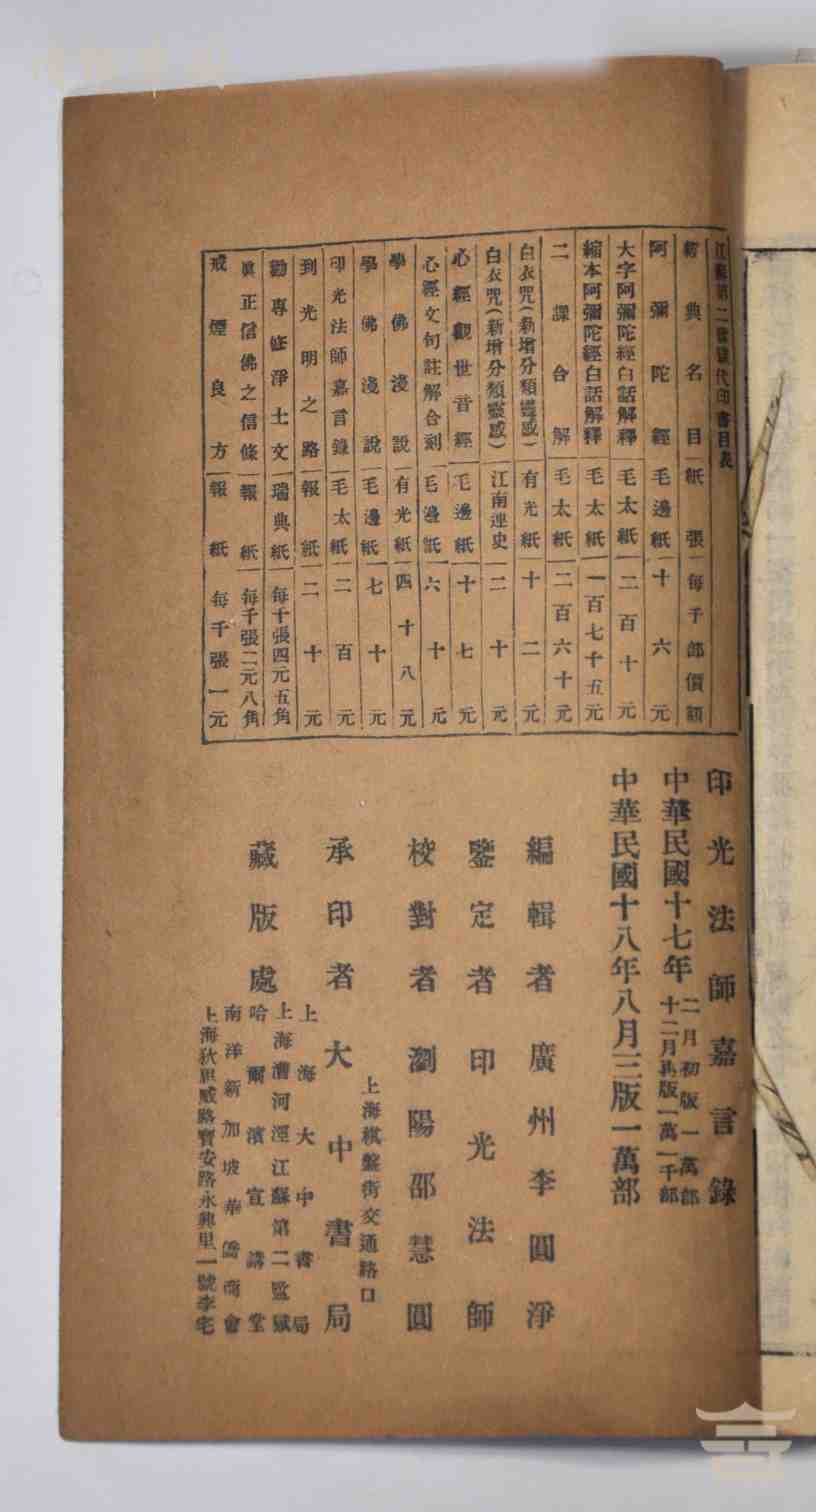 江蘇第二監獄代印書目表
經典名目 紙張 每千部價額
阿彌陀經 毛邊紙 十六元
大字阿彌陀經白話解釋 毛太紙 二百十元
縮本阿彌陀經白話解釋 毛太紙 一百七十五元
二課合解 毛太紙 二百六十元
白衣咒(新增分類靈感) 有光紙 十二元
白衣咒(新增分類靈感) 江南連史 二十元
心經觀世音經 毛邊紙 十七元
心經文句註解合刻 毛邊紙 六十元
學佛淺說 有光紙 四十八元
學佛淺說 毛邊紙 七十元
印光法師嘉言錄 毛太紙 二百元
到光明之路 報紙 二十元
勸專修淨土文 瑞典紙 每千張四元五角
眞正信佛之信條 報紙 每千張二元八角
戒煙良方 報紙 每千張一元
印光法師嘉言錄
中華民國十七年
二月初版一萬部
十二月再版一萬一千部
中華民國十八年八月三版一萬部
編輯者 廣州李圓淨
鑒定者 印光法師
校對者 瀏陽邵慧圓
上海棋盤街交通路口
承印者 大中書局
藏版處
上海大中書局
上海漕河涇江蘇第二監獄
哈爾濱宣講堂
南洋新加坡華僑商會
上海狄思威路寶安路永興里一號李宅